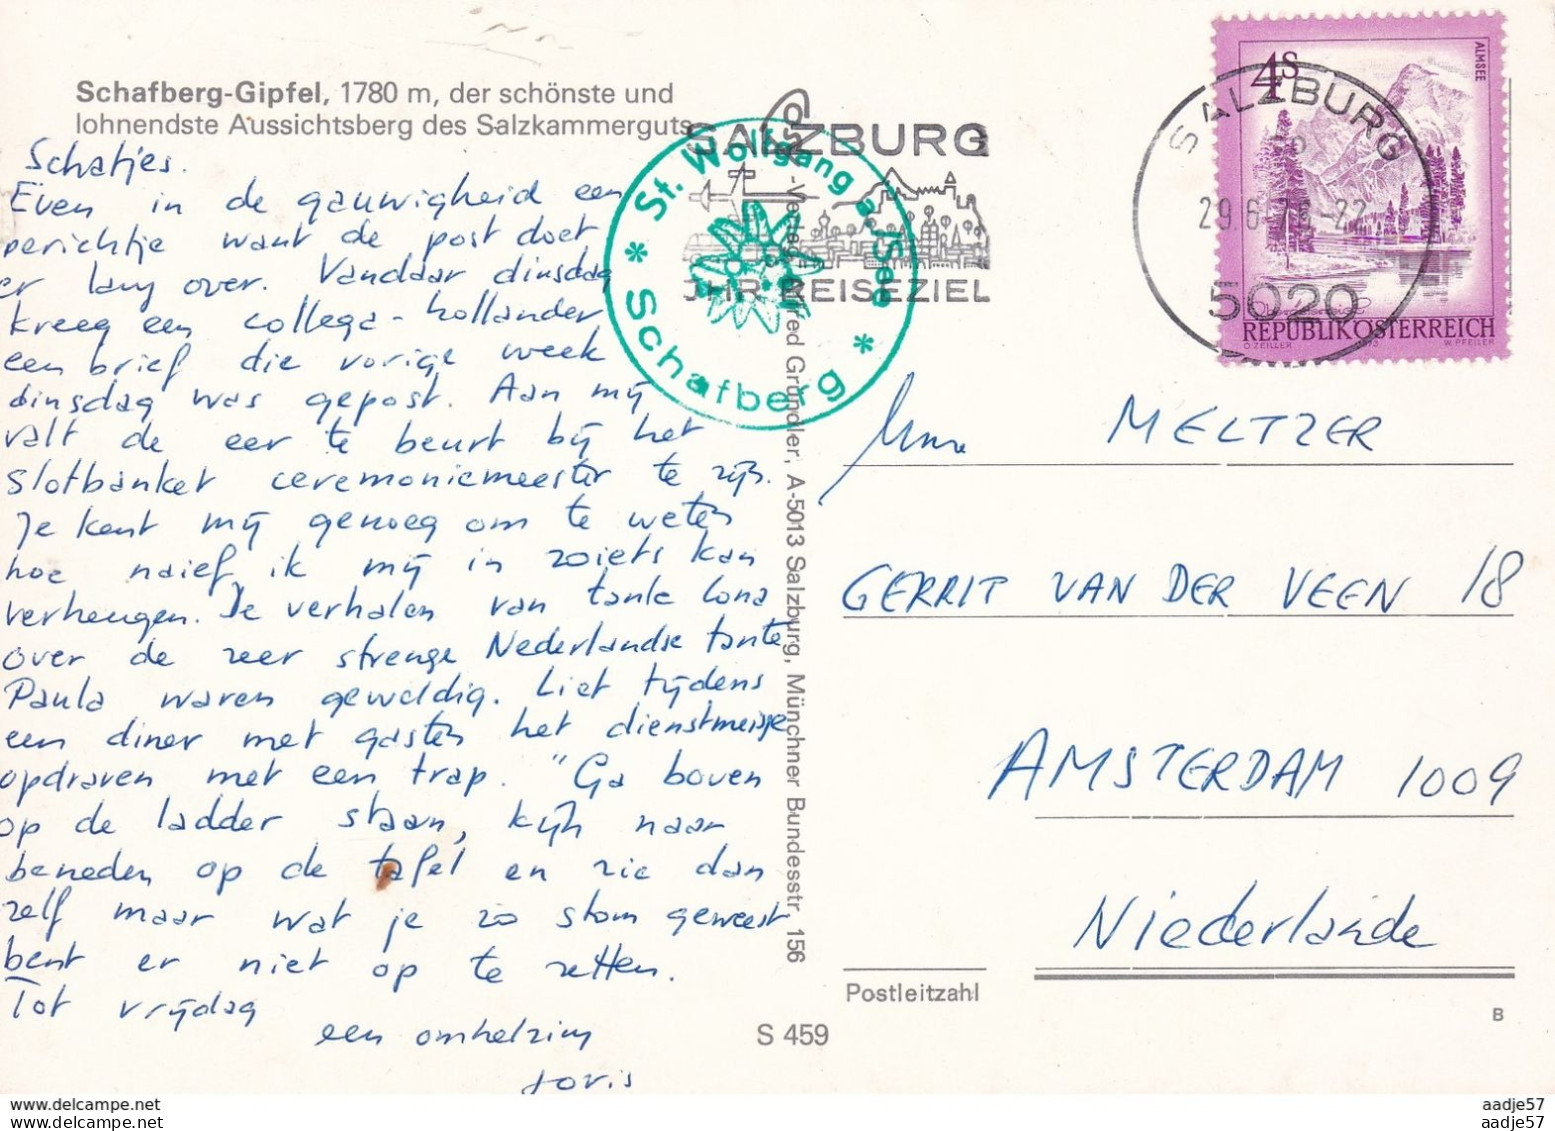 Schafberg-Gipfel, 1780 m, der schönste und
lohnendste Aussichtsberg des Salzkammerguts
Schatjes.
Even in de gauwigheid een
perichtje want de post doet
er lang over. Vandaar dinsdag
kreeg een collega-hollander
een brief die vorige week
dinsdag was gepost. Aan mij
valt de eer te beurt bij het
slotbanket ceremoniemeester te zijn.
Je kent mij genoeg om te weten
hoe naief ik mij in zoiets kan
verheugen. De verhalen van tante Lona
over de zeer strenge Nederlandse tante
Paula waren geweldig. Liet tijdens
een diner met gasten het dienstmeisje
opdraven met een trap. "Ga boven
op de ladder staan, kijk naar
beneden op de tafel en zie dan
zelf maar wat je zo stom geweest
bent er niet op te zetten.
Tot vrijdag
een omhelzing
Joris
St. Wolfgang a./See
* Schafberg *
SALZBURG
IHR REISEZIEL
-Verlag Alfred Gründler, A-5013 Salzburg, Münchner Bundesstr. 156
S 459
4S
ALMSEE
REPUBLIK ÖSTERREICH
O.ZEILLER 1973 W.PFEILER
SALZBURG
29.6.
-22
5020
MELTZER
GERRIT VAN DER VEEN 18
AMSTERDAM 1009
Niederlände
Postleitzahl
B
aadje57
aadje57
www.delcampe.net
www.delcampe.net